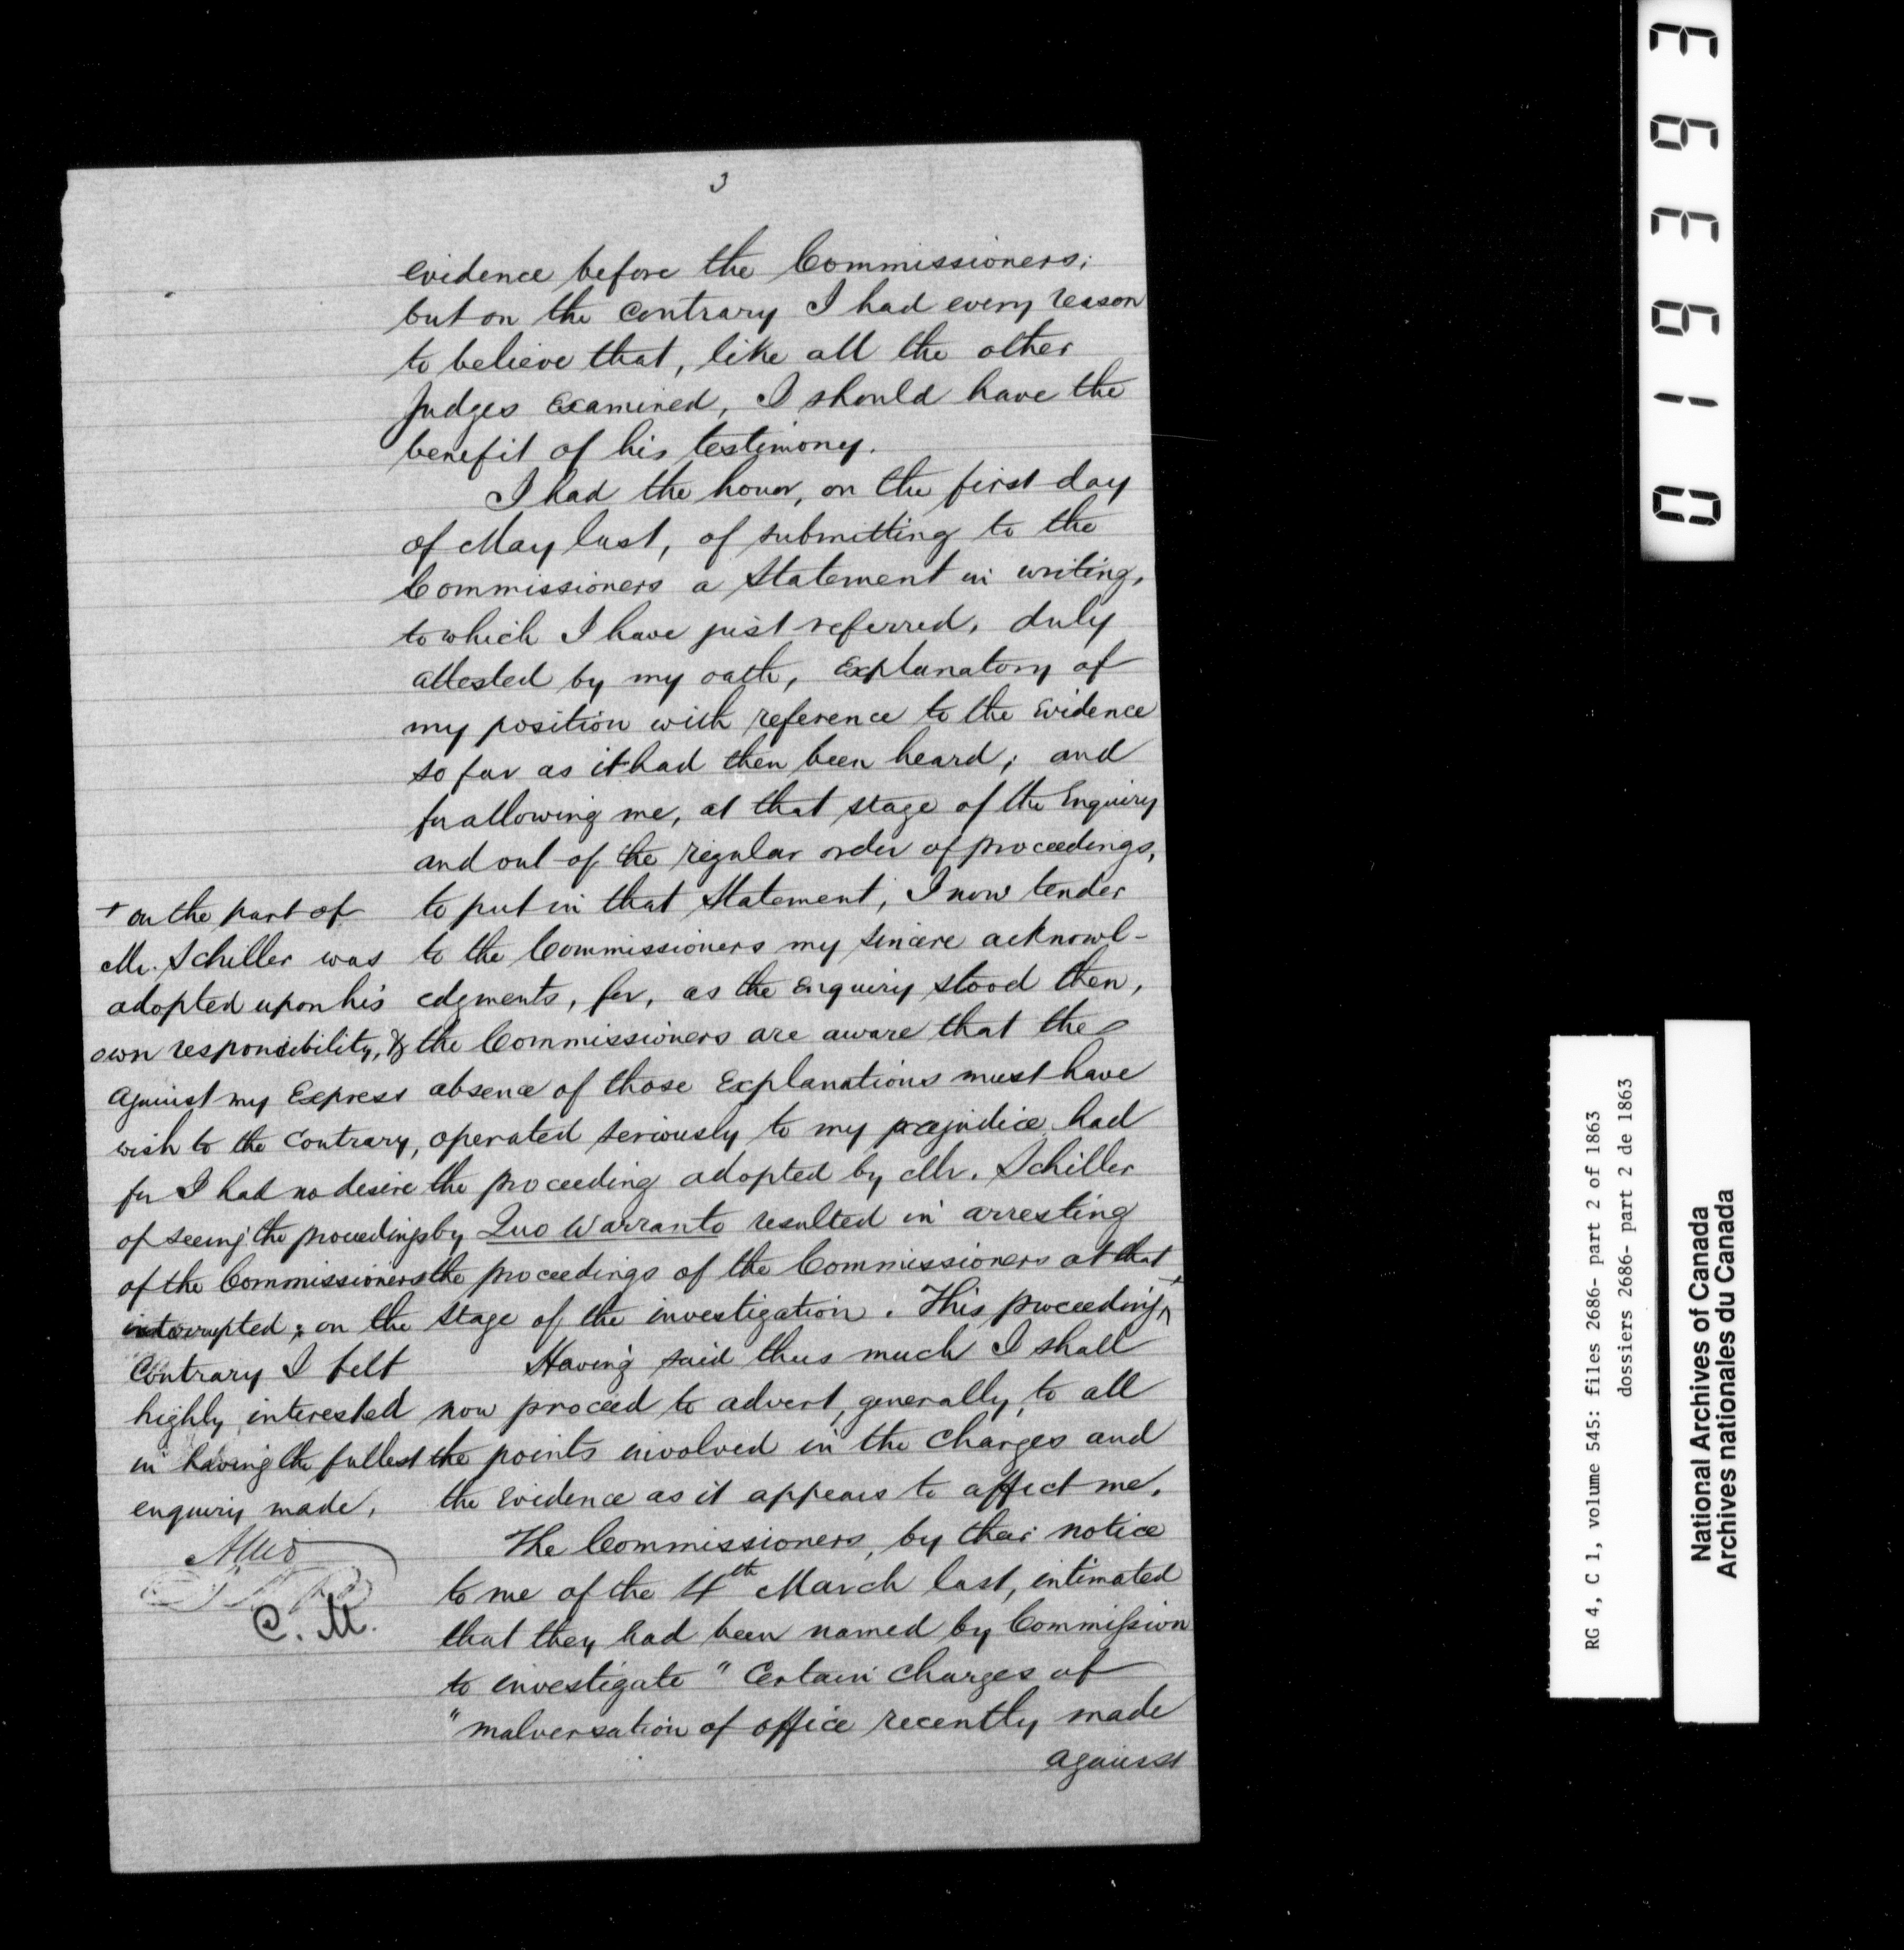 3
evidence before the Commissioners;
but on the contrary I had every reason
to believe that, like all the other
Judges examined, I should have the
benefit of his testimony.
I had the honor, on the first day
of May last, of submitting to the
Commissioners a Statement in writing,
to which I have just referred, duly
attested by my oath, explanatory of
my position with reference to the evidence
so far as it had then been heard; and
for allowing me, at that stage of the Enquiry
and out of the regular order of proceedings,
to put in that Statement, I now tender
to the Commissioners my sincere acknowl-
edgments, for, as the enquiry stood then,
the Commissioners are aware that the
absence of those explanations must have
operated seriously to my prejudice had
the proceeding adopted by Mr. Schiller
by Quo Warranto resulted in arresting
the proceedings of the Commissioners at that
stage of the investigation. This proceeding +
Having said thus much I shall
now proceed to advert, generally, to all
the points involved in the charges and
the evidence as it appears to affect me.
The Commissioners, by their notice
to me of the 4th March last, intimated
that they had been named by Commission
to investigate "Certain charges of
"malversation of office recently made
against
+ on the part of
Mr. Schiller was
adopted upon his
own responsibility, &
against my express
wish to the contrary,
for I had no desire
of seeing the proceedings
of the Commissioners
interrupted; on the
contrary I felt
highly interested
in having the fullest
enquiry made.
C. M.
019363
RG 4, C 1, volume 545: files 2686- part 2 of 1863
dossiers 2686- part 2 de 1863
National Archives of Canada
Archives nationales du Canada